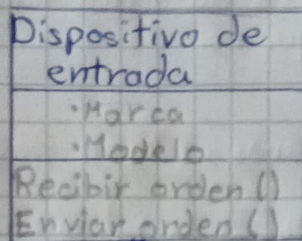 Dispositivo de
entrada
·Marca
·Modelo
Recibir orden ()
Enviar orden ()